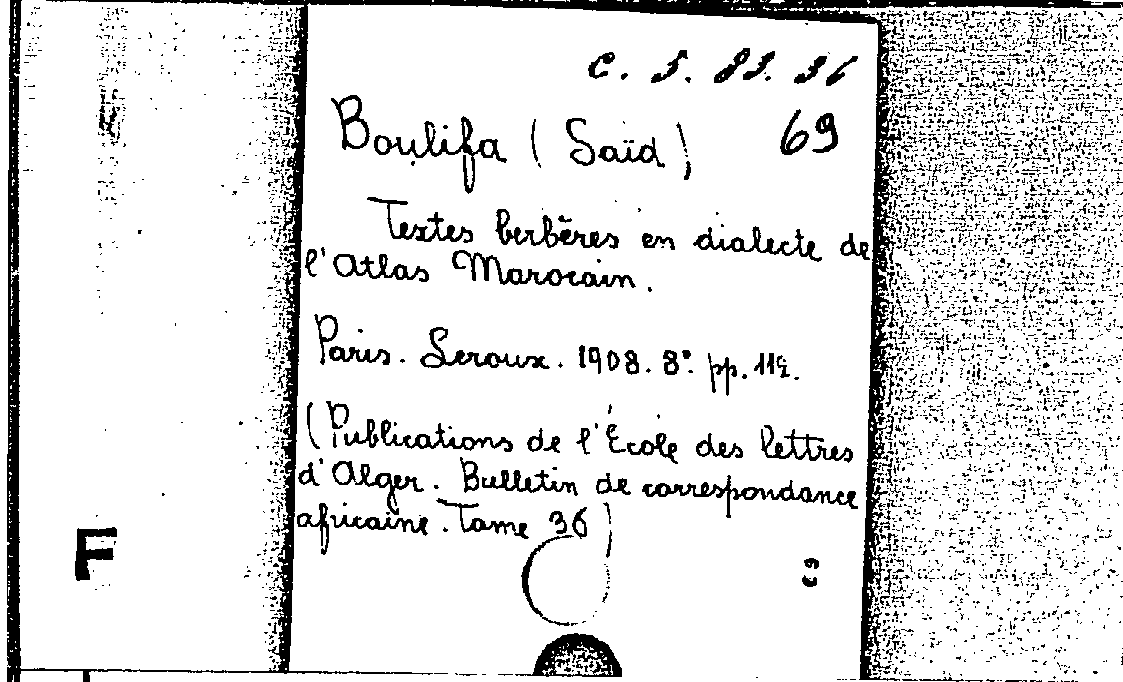 C. 5. 83. 36
69
Boulifa (Saïd)
Textes berbères en dialecte de
l'Atlas Marocain.
Paris. Leroux. 1908. 8° pp. 112.
(Publications de l'École des lettres
d'Alger. Bulletin de correspondance
africaine. Tome 36)
F